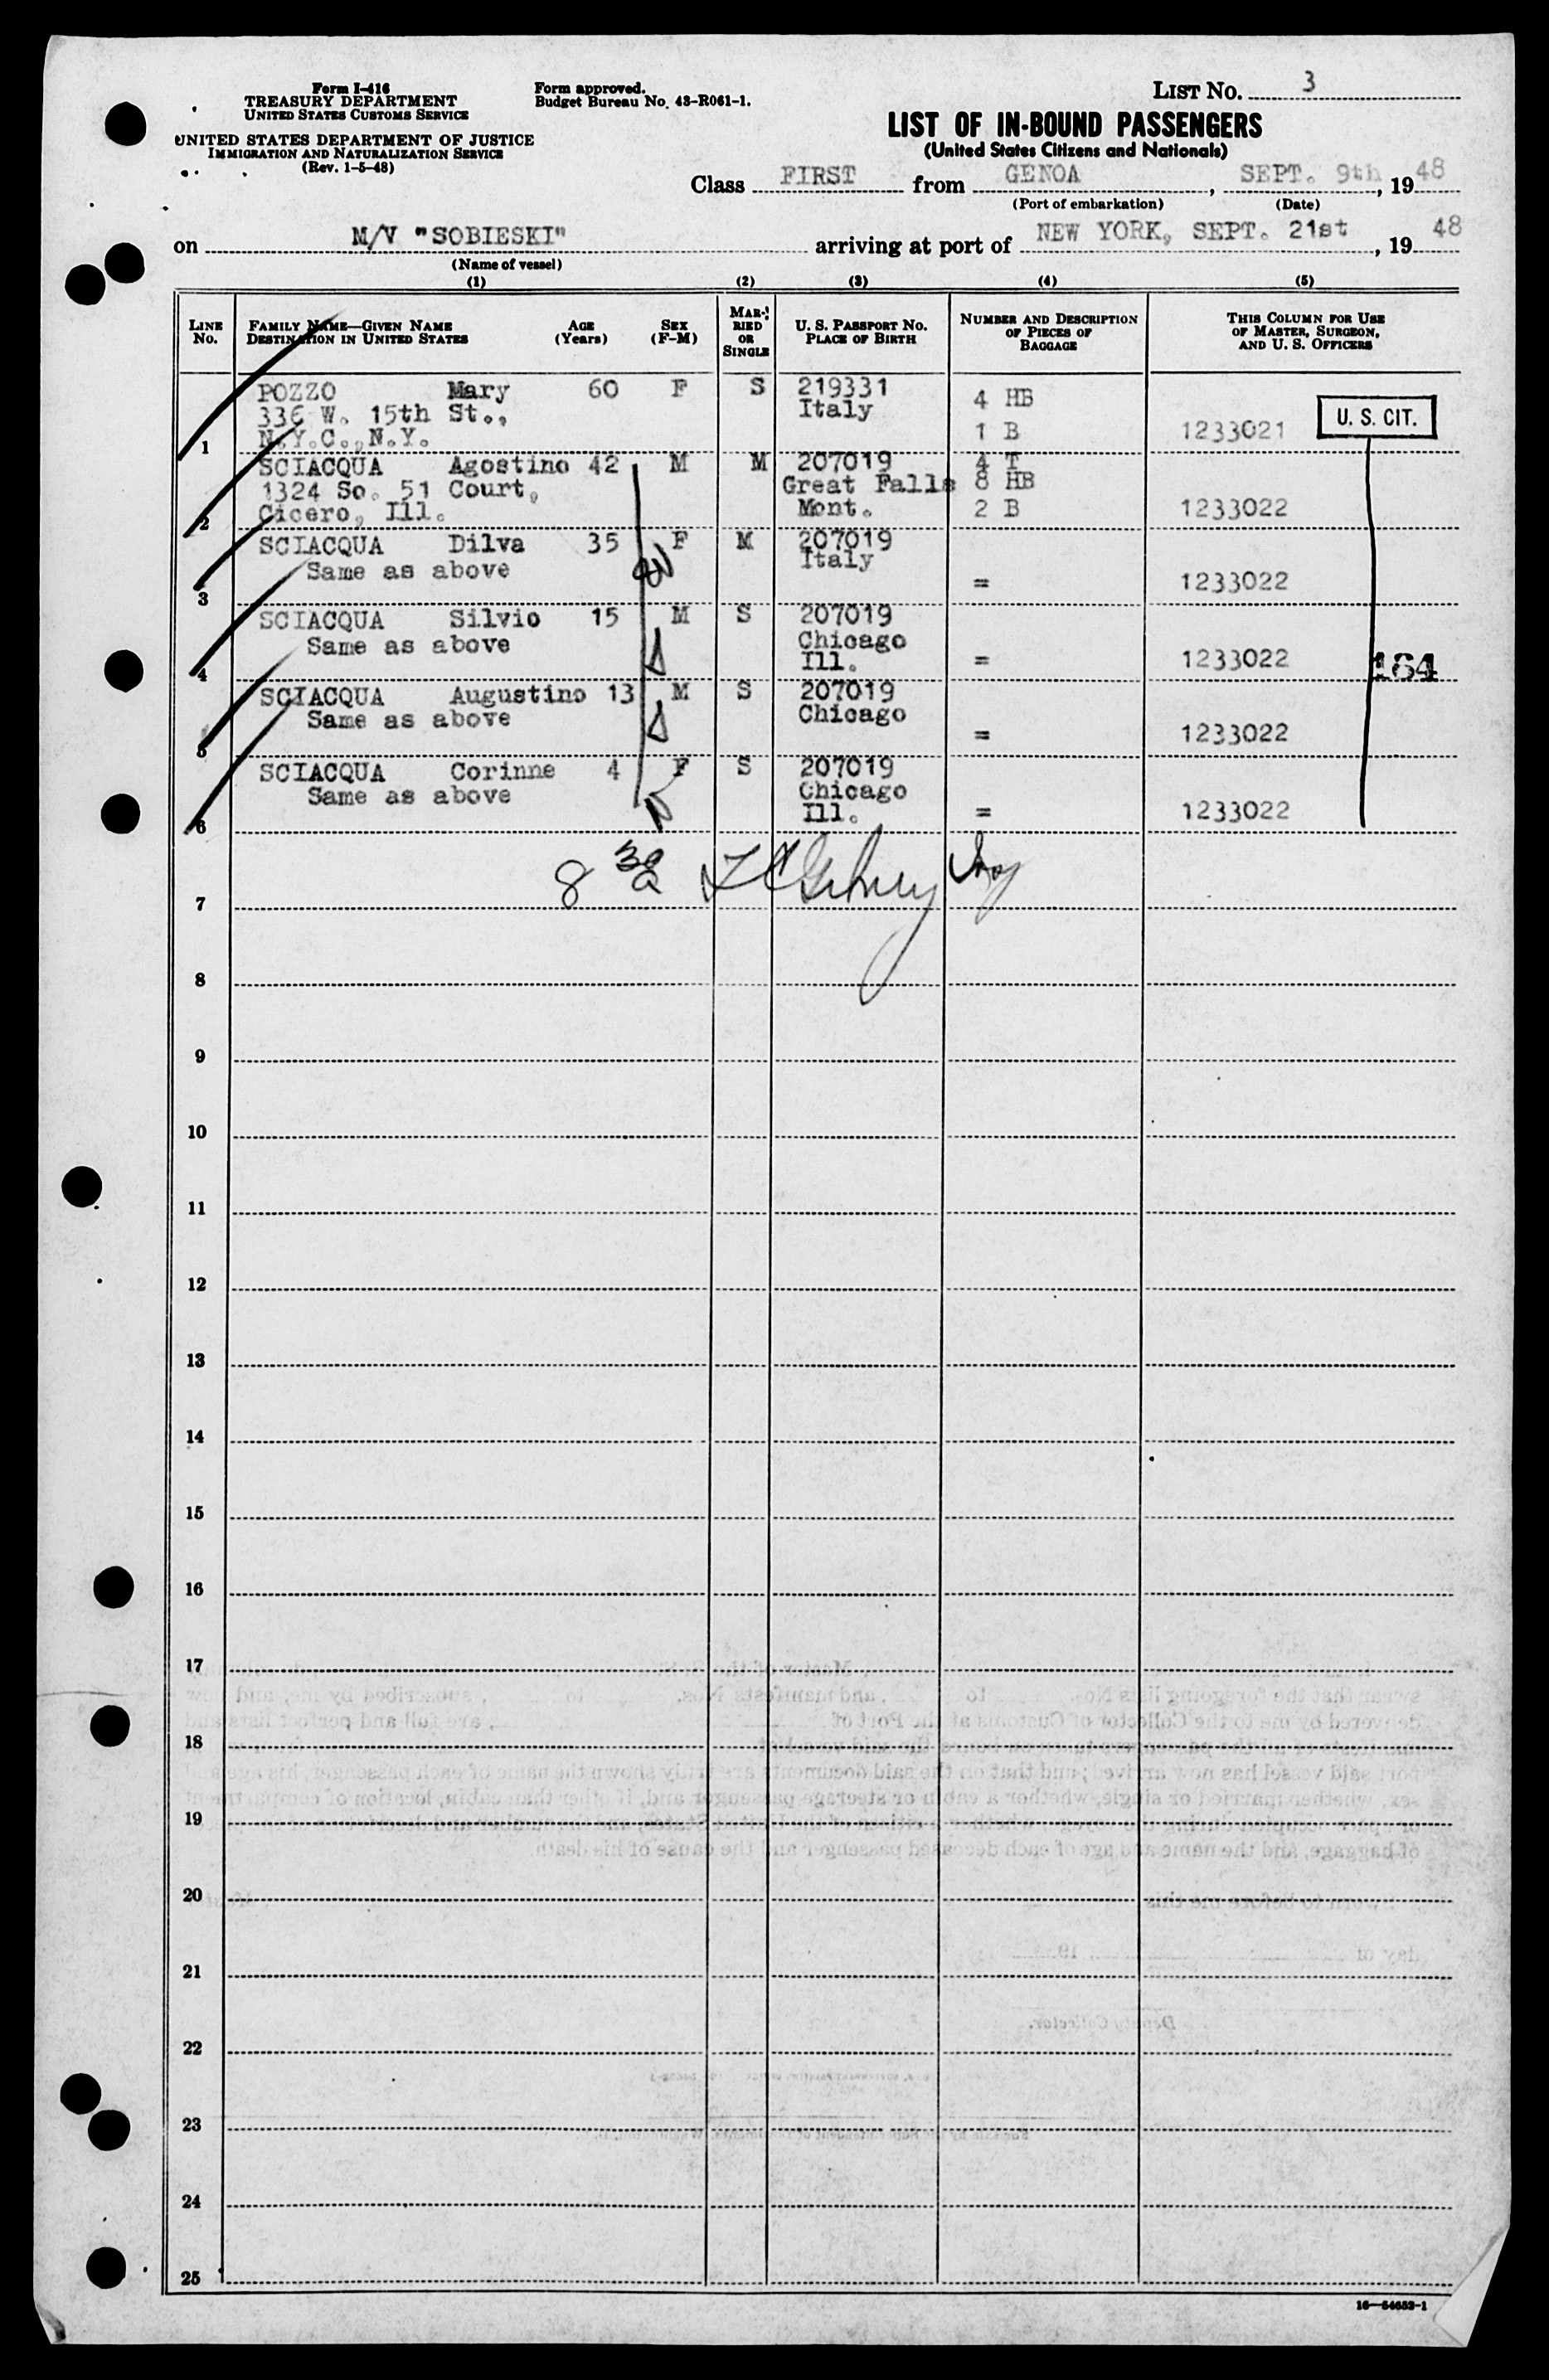 Form I-416
TREASURY DEPARTMENT
UNITED STATES CUSTOMS SERVICE
UNITED STATES DEPARTMENT OF JUSTICE
IMMIGRATION AND NATURALIZATION SERVICE
(Rev. 1-5-48)
Form approved.
Budget Bureau No. 43-R061-1.
LIST No. 3
LIST OF IN-BOUND PASSENGERS
(United States Citizens and Nationals)
Class FIRST from GENOA, SEPT. 9th, 1948
(Port of embarkation) (Date)
on M/V "SOBIESKI" arriving at port of NEW YORK, SEPT. 21st, 19 48
(Name of vessel)
(1) (2) (3) (4) (5)
LINE No.
FAMILY NAME—GIVEN NAME
DESTINATION IN UNITED STATES
AGE (Years)
SEX (F-M)
MARRIED OR SINGLE
U. S. PASSPORT No.
PLACE OF BIRTH
NUMBER AND DESCRIPTION OF PIECES OF BAGGAGE
THIS COLUMN FOR USE OF MASTER, SURGEON, AND U. S. OFFICERS
1 POZZO Mary 60 F S 219331 4 HB
336 W. 15th St., Italy
N.Y.C., N.Y. 1 B 1233021 U. S. CIT.
2 SCIACQUA Agostino 42 M M 207019 4 T
1324 So. 51 Court, Great Falls 8 HB
Cicero, Ill. Mont. 2 B 1233022
3 SCIACQUA Dilva 35 F M 207019
Same as above Italy = 1233022
4 SCIACQUA Silvio 15 M S 207019
Same as above Chicago
Ill. = 1233022 164
5 SCIACQUA Augustino 13 M S 207019
Same as above Chicago = 1233022
6 SCIACQUA Corinne 4 F S 207019
Same as above Chicago
Ill. = 1233022
8 32
7
8
9
10
11
12
13
14
15
16
17
18
19
20
21
22
23
24
25
16—54652-1